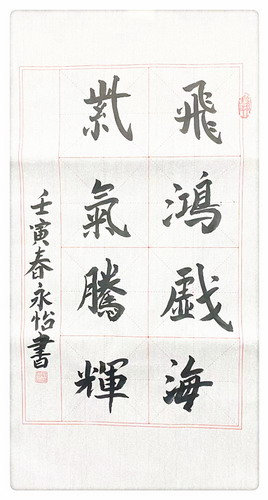 飛鴻戲海
紫氣騰輝
壬寅春永怡書